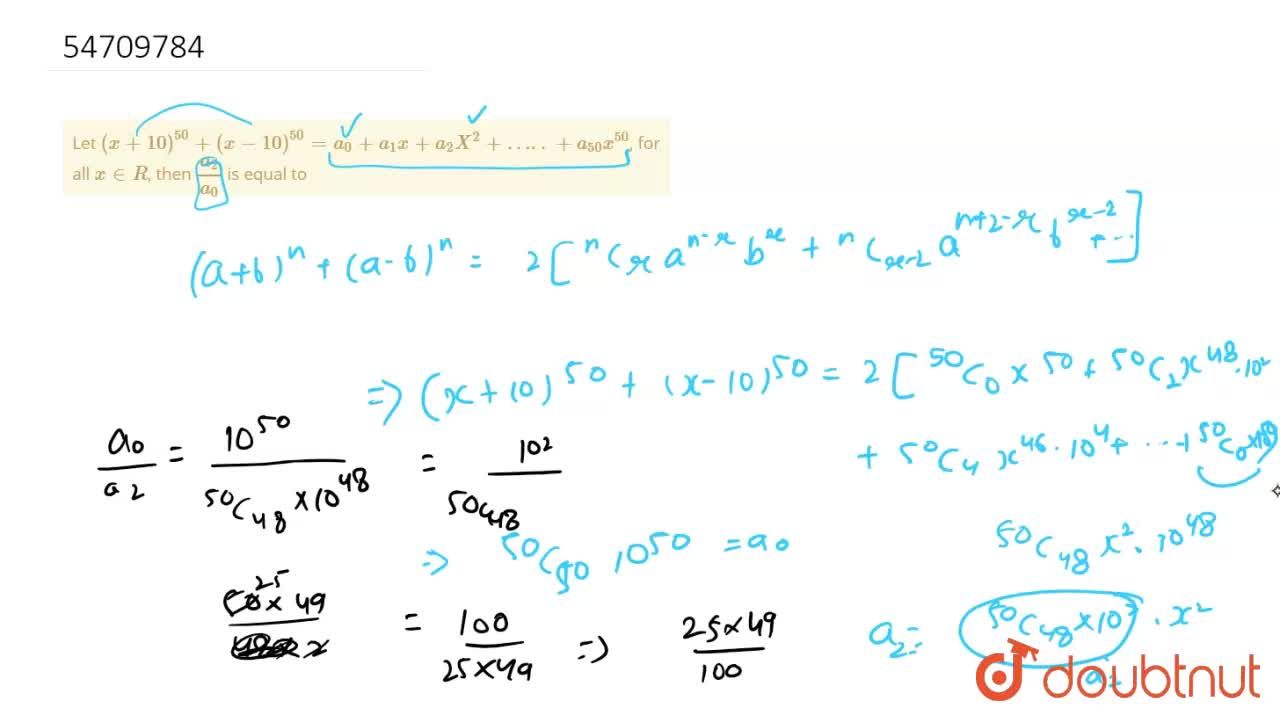 54709784
Let (x + 10)^50 + (x − 10)^50 = a₀ + a₁x + a₂X² + ..... + a₅₀x^50, for
all x ∈ R, then a₂/a₀ is equal to
(a+b)^n + (a-b)^n = 2[ ^nC_r a^(n-r) b^r + ^nC_(r-2) a^(n+2-r) b^(r-2) + ...]
=> (x+10)^50 + (x-10)^50 = 2[ ^50C₀ x^50 + ^50C₂ x^48 · 10²
+ ^50C₄ x^46 · 10⁴ + ... +
a₀/a₂ = 10^50 / (^50C₄₈ × 10^48) = 10² / 50C48
^50C₄₈ x² · 10^48
=> ^50C₅₀ 10^50 = a₀
25
50×49 / 2 = 100 / 25×49 => 25×49 / 100
a₂ = ^50C₄₈ × 10 · x²
a₂
doubtnut